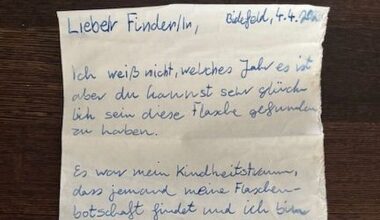 Lieber Finder/in, Bidefeld, 4.4.
Ich weiß nicht, welches Jahr es ist
aber du kannst sehr glück-
lich sein diese Flasche gefunden
zu haben.
Es war mein Kindheitstraum,
dass jemand meine Flaschen-
botschaft findet und ich